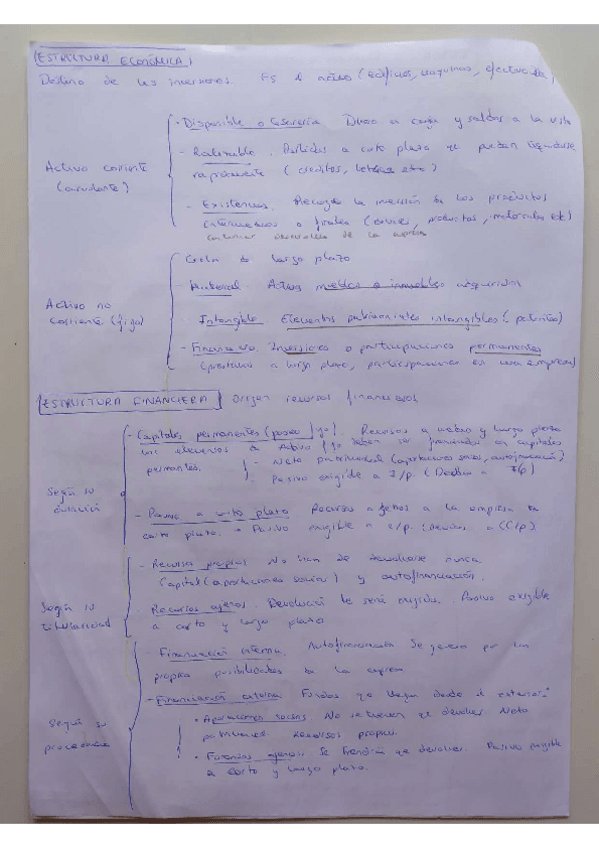 ESTRUCTURA ECONÓMICA
Destino de las inversiones. Es el activo (edificios, maquinas, efectivo
- Disponible o tesorería. Dinero en caja y saldos a la vista
Activo corriente
(circulante)
- Realizable. Partidas a corto plazo que puedan liquidarse
rapidamente (creditos, letras etc)
- Existencias. Recoge la inversión de los productos
intermedios o finales (envases, productos, materiales etc)
de la
largo plazo
- Material. Activos muebles o inmuebles adquiridos
Activo no
corriente (fijo)
- Intangible. Elementos patrimoniales intangibles (patentes)
- Financiero. Inversiones o participaciones permanentes
(prestamos a largo plazo, participaciones en una empresa)
ESTRUCTURA FINANCIERA Origen recursos financieros
- Capitales permanentes (pasivo fijo). Recursos a medio y largo plazo
los elementos de Activo fijo deben ser financiados en capitales
permanentes. - Neto patrimonial (aportaciones socios, autofinanciación)
- Pasivo exigible a l/p. (Deudas a l/p)
Según su
duración
- Pasivo a corto plazo. Recursos ajenos a la empresa a
corto plazo. - Pasivo exigible a c/p. (Deudas a C/p)
- Recursos propios. No han de devolverse nunca
Capital (aportaciones socios) y autofinanciación.
Según su
titularidad
- Recursos ajenos. Devolución le será exigida. Pasivo exigible
a corto y largo plazo
- Financiación interna. Se genera por las
propias posibilidades de la empresa
- Financiación externa. Fondos que llegan desde el exterior:
Según su
procedencia
• Aportaciones socios. No se tienen que devolver. Neto
patrimonial Recursos propios.
• Fuentes ajenas: Se tendrán que devolver. Pasivo exigible
a corto y largo plazo.